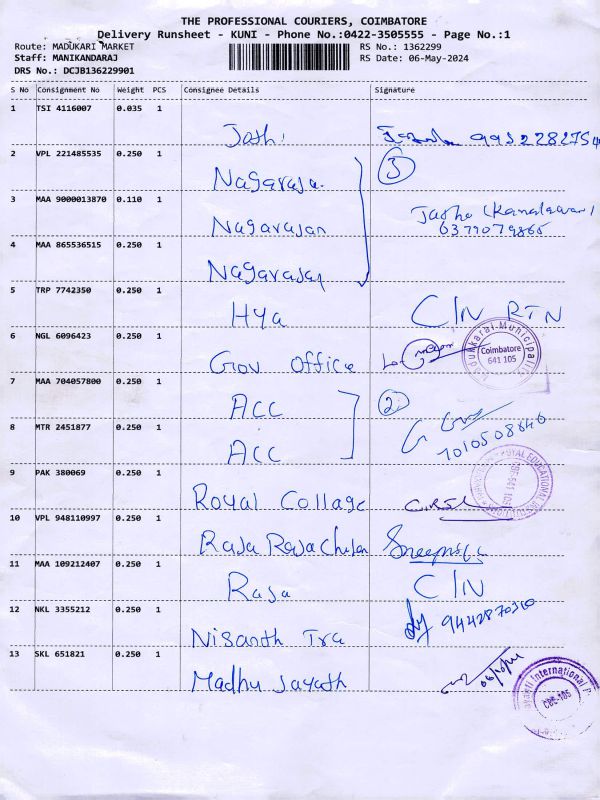 THE PROFESSIONAL COURIERS, COIMBATORE
Delivery Runsheet - KUNI - Phone No.:0422-3505555 - Page No.:1
Route: MADUKARI MARKET
RS No.: 1362299
Staff: MANIKANDARAJ
RS Date: 06-May-2024
DRS No.: DCJB136229901
S No Consignment No Weight PCS Consignee Details Signature
1 TSI 4116007 0.035 1
Joshi
2 VPL 221485535 0.250 1
Nagaraja 3
3 MAA 9000013870 0.110 1
Nagarajan
6377079865
4 MAA 865536515 0.250 1
Nagarajan
5 TRP 7742350 0.250 1
Hya C/N RTN
6 NGL 6096423 0.250 1
Gov office
Coimbatore
641 105
7 MAA 704057800 0.250 1
ACC 2
8 MTR 2451877 0.250 1
ACC 7010508646
9 PAK 380069 0.250 1
Royal Collage
10 VPL 948110997 0.250 1
Raja
11 MAA 109212407 0.250 1
Raja C/N
12 NKL 3355212 0.250 1
Nisanth Tra
13 SKL 651821 0.250 1
Madhu Jayath
International
CBE-105